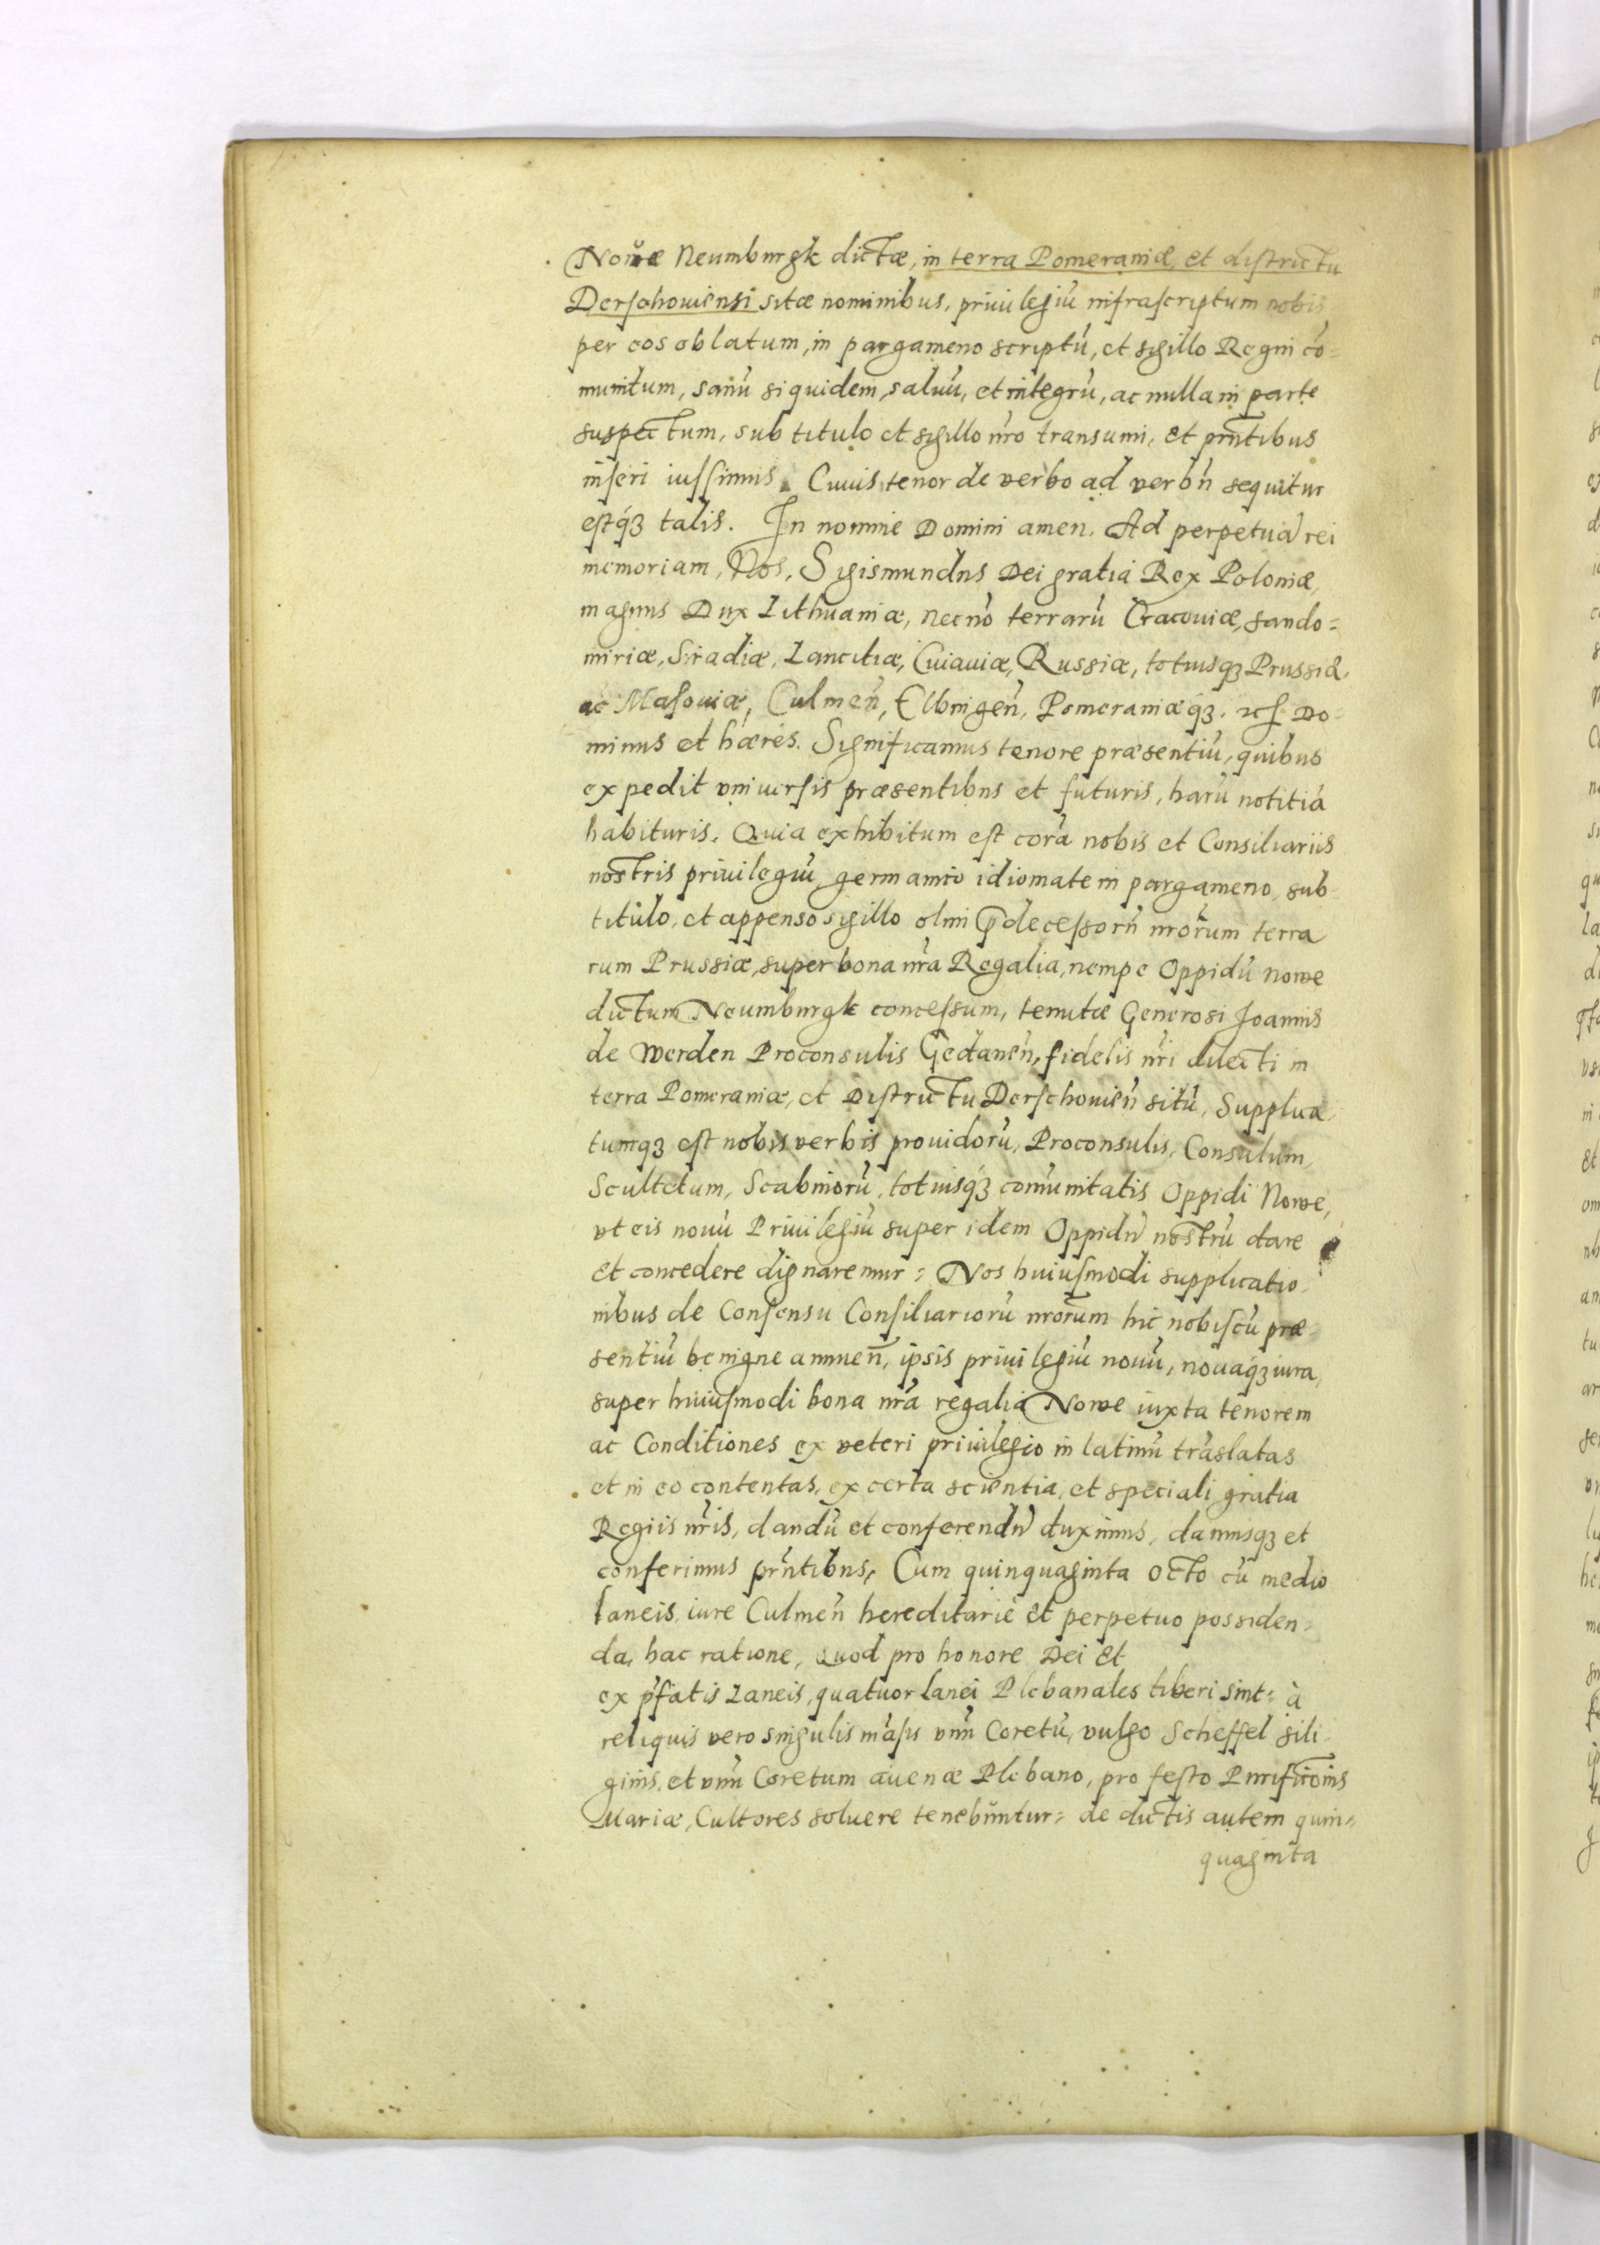 Nowæ Neumburgk dictæ, in terra Pomeraniæ, et districtu
Derschouiensi sitæ nominibus, priuilegiũ infrascriptum nobis
per eos oblatum, in pargameno scriptũ, et sigillo Regni cõ=
munitum, sanũ siquidem, saluũ, et integrũ, ac nulla in parte
suspectum, sub titulo et sigillo nr̃o transumi, et pñtibus
inseri iussimus. Cuius tenor de verbo ad verbũ sequitur
estq́ꝫ talis. In nomine Domini amen. Ad perpetuã rei
memoriam, Nos, Sigismundus Dei gratia Rex Poloniæ,
magnus Dux Lithuaniæ, necnõ terrarũ Cracouiæ, Sando=
miriæ, Siradiæ, Lancitiæ, Cuiauiæ, Russiæ, totiusqꝫ Prussiæ,
ac Masouiæ, Culmeñ, Elbingeñ, Pomeraniæq́ꝫ. Do=
minus et hæres. Significamus tenore præsentiũ, quibus
expedit vniuersis præsentibus et futuris, harũ notitiã
habituris. Quia exhibitum est corã nobis et Consiliariis
nostris priuilegiũ germanico idiomate in pargameno, sub
titulo, et appenso sigillo olim p̃decessorũ nr̃orum terra
rum Prussiæ, super bona nr̃a Regalia, nempe Oppidũ Nowe
dictum Neumburgk concessum, tenutæ Generosi Joannis
de Werden Proconsulis Gedaneñ, fidelis nr̃i dilecti in
terra Pomeraniæ, et Districtu Derschouieñ sitũ, Supplica
tumqꝫ est nobis verbis prouidorũ, Proconsulis, Consulum,
Scultetum, Scabinorũ, totiusq́ꝫ com̃unitatis Oppidi Nowe,
vt eis nouũ Priuilegiũ super idem Oppidũ nostrũ dare
et concedere dignaremur: Nos huiusmodi supplicatio=
nibus de Consensu Consiliariorũ nr̃orum hic nobiscũ præ=
sentiũ benigne annueñ, ipsis priuilegiũ nouũ, nouaq́ꝫ iura,
super huiusmodi bona nr̃a regalia Nowe iuxta tenorem
ac Conditiones ex veteri priuilegio in latinũ trãslatas
et in eo contentas, ex certa scientia, et speciali gratia
Regiis nr̃is, dandũ et conferendũ duximus, damusqꝫ et
conferimus pr̃ntibus, Cum quinquaginta octo cũ medio
laneis, iure Culmeñ hereditarie et perpetuo possiden=
da, hac ratione, Quod pro honore Dei Et
ex p̃fatis Laneis, quatuor lanei Plebanales liberi sint: à
reliquis vero singulis mãsis vnũ Coretũ, vulgo Scheffel sili
ginis, et vnũ Coretum auenæ Plebano, pro festo Purificõnis
Mariæ, Cultores soluere tenebuntur: de dictis autem quin=
quaginta